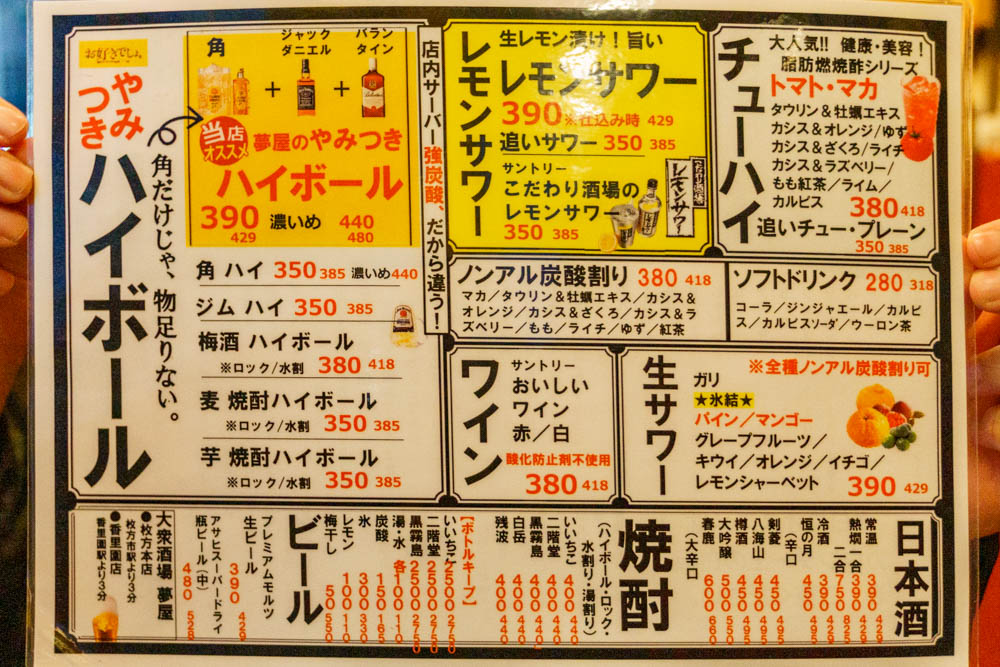 お好きでしょ。
やみつき
ハイボール
角だけじゃ、物足りない。
角
ジャック
ダニエル
バラン
タイン
+
+
当店
オススメ
夢屋のやみつき
ハイボール
390 濃いめ 440
429 480
角 ハイ 350 385 濃いめ440
ジム ハイ 350 385
梅酒 ハイボール
※ロック/水割 380 418
麦 焼酎ハイボール
※ロック/水割 350 385
芋 焼酎ハイボール
※ロック/水割 350 385
店内サーバー強炭酸、だから違う！
レモンサワー
生レモン漬け！旨い
レモンサワー
390 ※仕込み時 429
追いサワー 350 385
サントリー
こだわり酒場の
レモンサワー
350 385
こだわり酒場
レモンサワー
チューハイ
大人気!! 健康・美容！
脂肪燃焼酢シリーズ
トマト・マカ
タウリン＆牡蠣エキス
カシス＆オレンジ/ゆず
カシス＆ざくろ/ライチ
カシス＆ラズベリー/
もも紅茶/ライム/
カルピス 380 418
追いチュー・プレーン
350 385
ノンアル炭酸割り 380 418
マカ/タウリン＆牡蠣エキス/カシス＆
オレンジ/カシス＆ざくろ/カシス＆ラ
ズベリー/もも/ライチ/ゆず/紅茶
ソフトドリンク 280 318
コーラ/ジンジャエール/カルピ
ス/カルピスソーダ/ウーロン茶
ワイン
サントリー
おいしい
ワイン
赤/白
酸化防止剤不使用
380 418
生サワー
※全種ノンアル炭酸割り可
ガリ
★氷結★
パイン/マンゴー
グレープフルーツ/
キウイ/オレンジ/イチゴ/
レモンシャーベット 390 429
日本酒
常温 390 429
熱燗一合 390 429
二合 750 825
冷酒 390 429
恒の月 450 495
(辛口)
剣菱 450 495
八海山 450 495
樽酒 450 495
大吟醸 500 550
春鹿 600 660
(大辛口)
焼酎
(ハイボール・ロック・
水割り・湯割り)
いいちこ 400 440
二階堂 400 440
黒霧島 400 440
白岳 400 440
残波 400 440
【ボトルキープ】
いいちこ 2500 2750
二階堂 2500 2750
黒霧島 2500 2750
湯・水 各100 110
炭酸 150 165
氷 300 330
レモン 100 110
梅干し 50 55
ビール
プレミアムモルツ
生ビール 390 429
アサヒスーパードライ
瓶ビール(中) 480 528
大衆酒場 夢屋
●枚方本店
枚方市駅より3分
●香里園店
香里園駅より3分